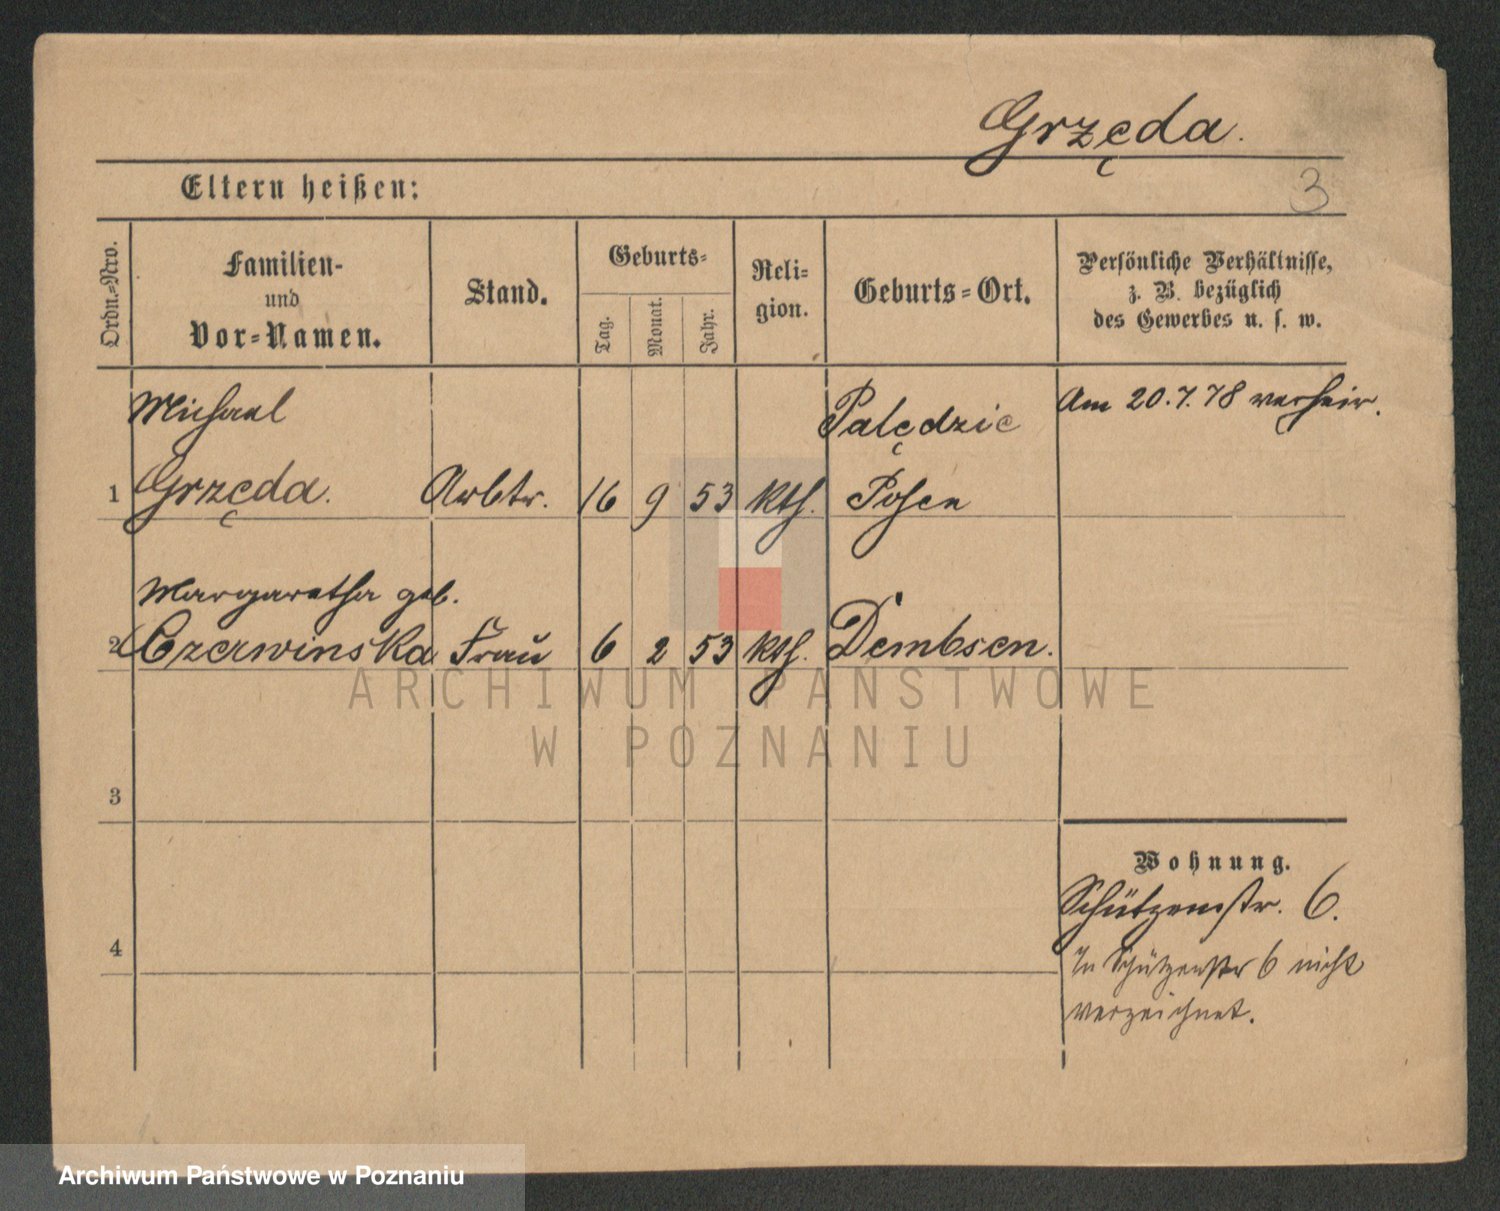 Grzęda.
Eltern heißen:
3
Ordn.-Nro.
Familien-
und
Vor-Namen.
Stand.
Geburts-
Tag.
Monat.
Jahr.
Reli-
gion.
Geburts-Ort.
Persönliche Verhältnisse,
z. B. bezüglich
des Gewerbes u. s. w.
Michael Palędzie Am 20.7.78 verheir.
1 Grzęda. Arbtr. 16 9 53 kth. Posen
Margaretha geb.
2 Czerwinska Frau 6 2 53 kth. Dembsen.
ARCHIWUM PAŃSTWOWE
W POZNANIU
3
Wohnung.
Schützenstr. 6.
4
In Schützenstr 6 nicht
verzeichnet.
Archiwum Państwowe w Poznaniu